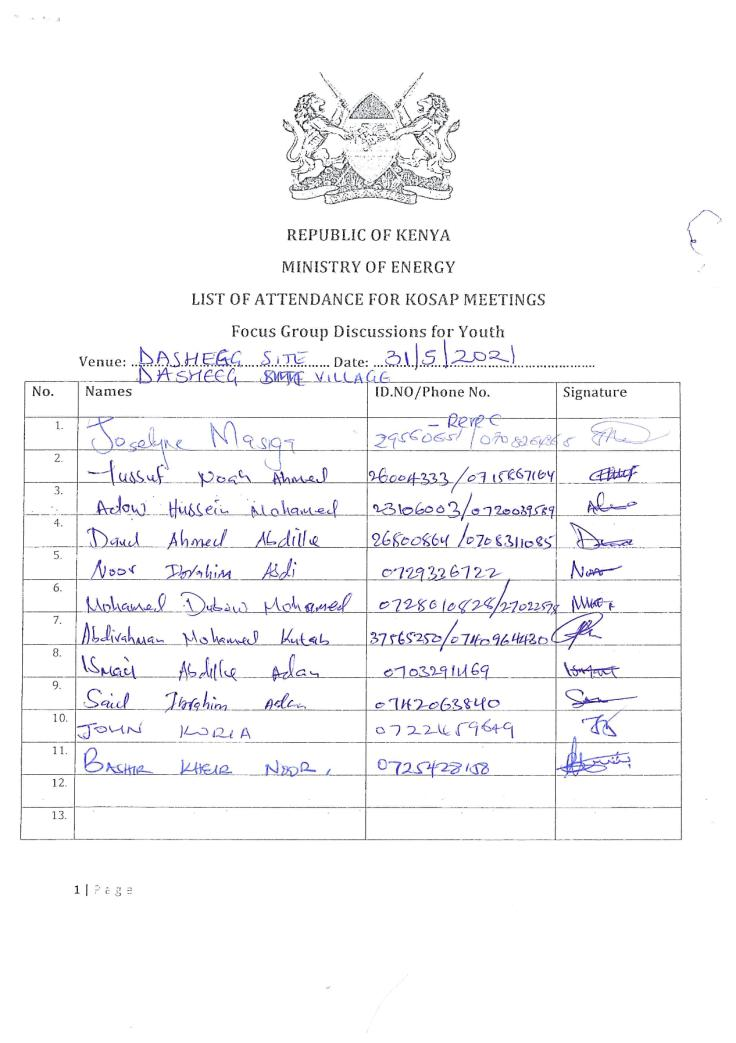 REPUBLIC OF KENYA
MINISTRY OF ENERGY
LIST OF ATTENDANCE FOR KOSAP MEETINGS
Focus Group Discussions for Youth
Venue: DASHEGG SITE Date: 31/5/2021
DASHEEG VILLAGE
No. Names ID.NO/Phone No. Signature
1. Joselyne Masiga
2. Yussuf Noah Ahmed 26004333/0715867164
3. Adow Hussein Mohamed 23106003/0720039589
4. Daud Ahmed Abdille 26800864/0708311085
5. Noor Ibrahim Abdi 0729326722
6. Mohamed Dubow Mohamed 0728010828/
7. Abdirahman Mohamed Kutab 37565250/0740964430
8. Ismail Abdille Adan
9. Said Ibrahim Adan 0742063840
10. JOHN KURIA
11. BASHIR KHEIR NOOR, 0725428158
12.
13.
1 | Page